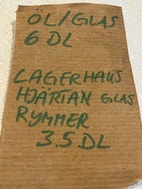 ÖL/GLAS
6 DL
LAGERHAUS
HJÄRTAN GLAS
RYMMER
3.5 DL